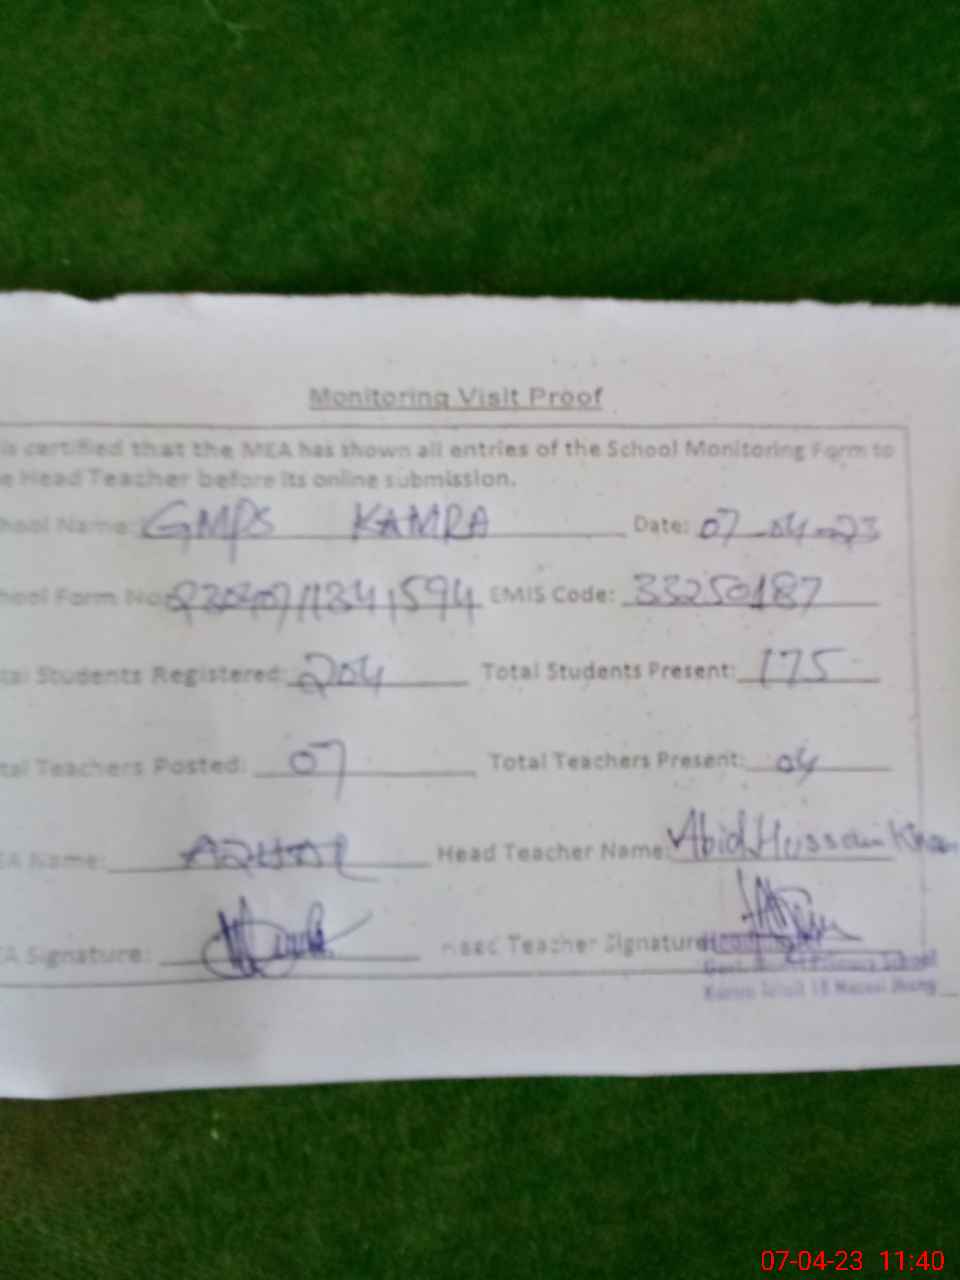 Monitoring Visit Proof
is certified that the MEA has shown all entries of the School Monitoring Form to
e Head Teacher before its online submission.
hool Name: GMPS KAMRA Date: 07-04-23
hool Form No: EMIS Code: 33250187
tal Students Registered: 204 Total Students Present: 175
tal Teachers Posted: 07 Total Teachers Present: 04
EA Name: AZHAR Head Teacher Name: Abid Hussain Khan
EA Signature: Head Teacher Signature
Primary School
07-04-23 11:40